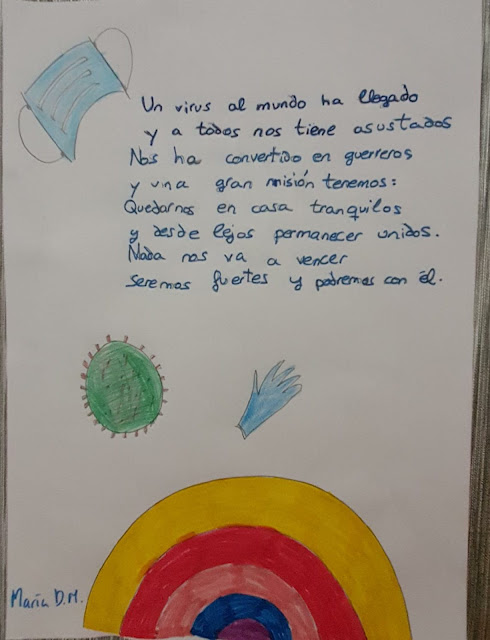 Un virus al mundo ha llegado
y a todos nos tiene asustados
Nos ha convertido en guerreros
y una gran misión tenemos:
Quedarnos en casa tranquilos
y desde lejos permanecer unidos.
Nada nos va a vencer
seremos fuertes y podremos con él.
María D.M.